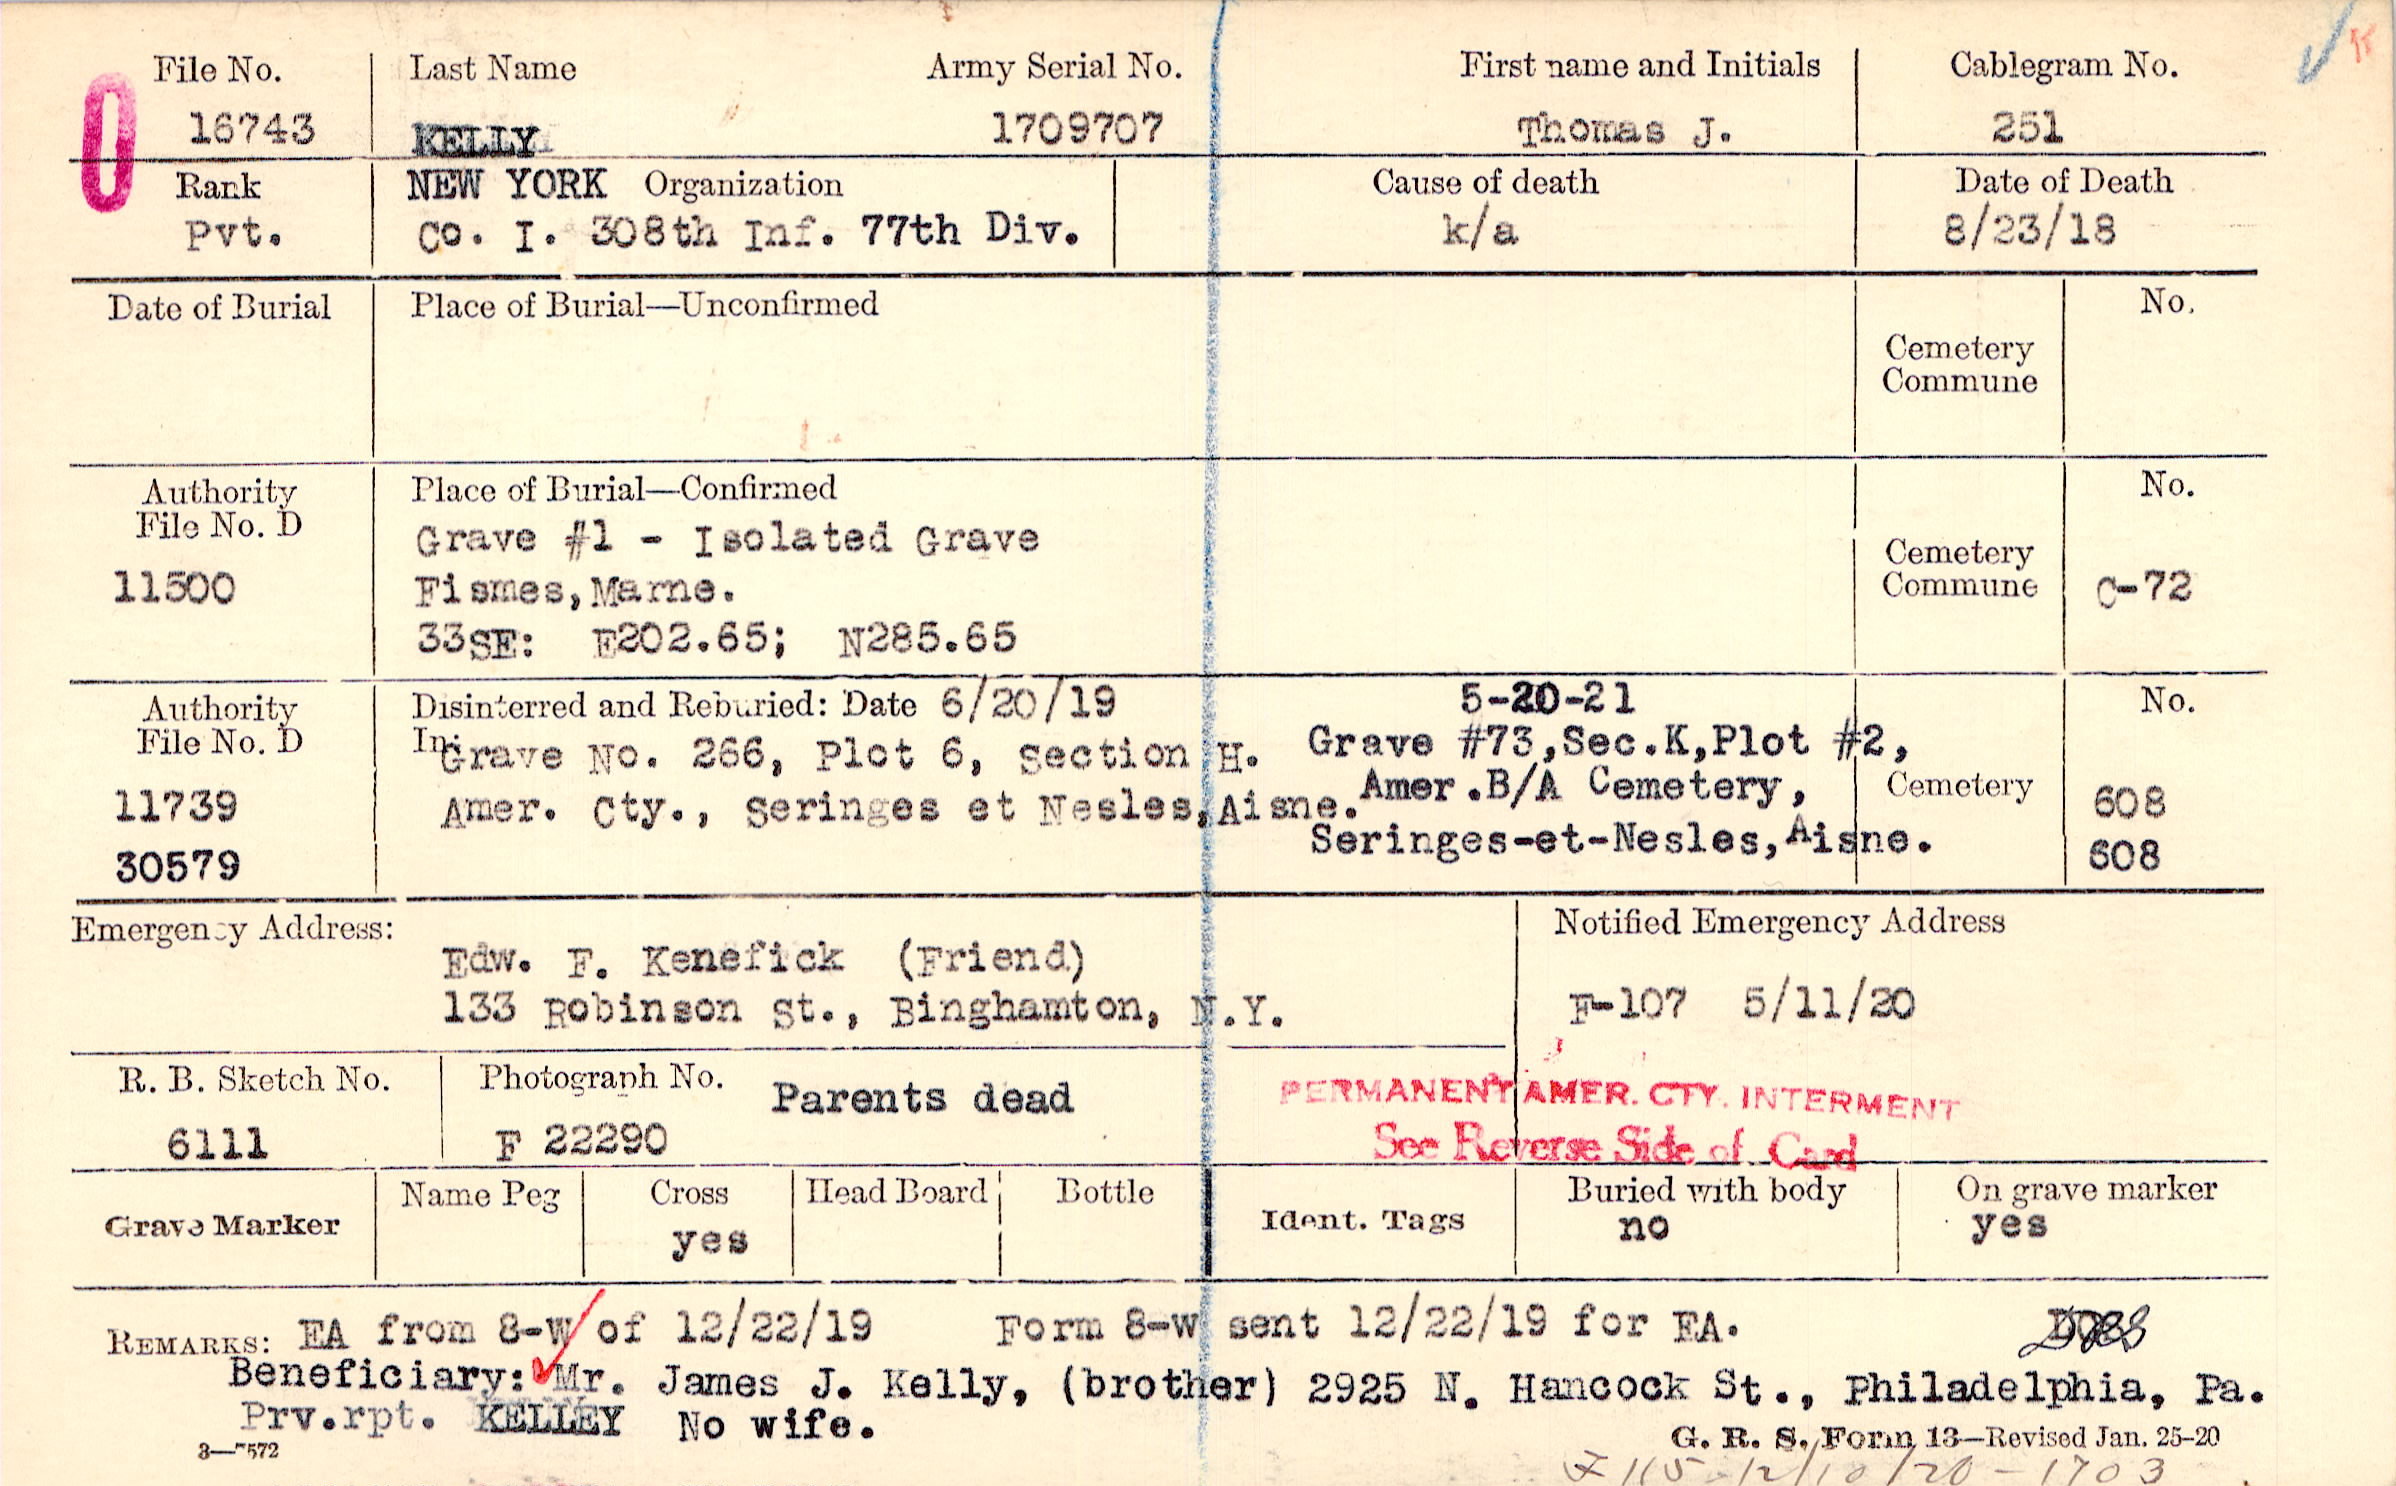 File No. Last Name Army Serial No. First name and Initials Cablegram No.
16743 KELLY 1709707 Thomas J. 251
Rank NEW YORK Organization Cause of death Date of Death
Pvt. Co. I. 308th Inf. 77th Div. k/a 8/23/18
Date of Burial Place of Burial—Unconfirmed No.
Cemetery
Commune
Authority Place of Burial—Confirmed No.
File No. D Grave #1 - Isolated Grave
Cemetery
11500 Fismes, Marne. Commune C-72
33SE: E202.65; N285.65
Authority Disinterred and Reburied: Date 6/20/19 5-20-21 No.
File No. D In: Grave No. 266, Plot 6, Section H. Grave #73, Sec.K, Plot #2,
11739 Amer. Cty., Seringes et Nesles, Aisne. Amer.B/A Cemetery, Cemetery 608
30579 Seringes-et-Nesles, Aisne. 608
Emergency Address: Notified Emergency Address
Edw. F. Kenefick (Friend)
133 Robinson St., Binghamton, N.Y. F-107 5/11/20
R. B. Sketch No. Photograph No. Parents dead PERMANENT AMER. CTY. INTERMENT
6111 F 22290 See Reverse Side of Card
Grave Marker Name Peg Cross Head Board Bottle Ident. Tags Buried with body On grave marker
yes no yes
REMARKS: EA from 8-W of 12/22/19 Form 8-W sent 12/22/19 for EA.
Beneficiary: Mr. James J. Kelly, (brother) 2925 N. Hancock St., Philadelphia, Pa.
Prv.rpt. KELLEY No wife.
3—7572 G. R. S. Form 13—Revised Jan. 25-20
115-12/10/20-1703